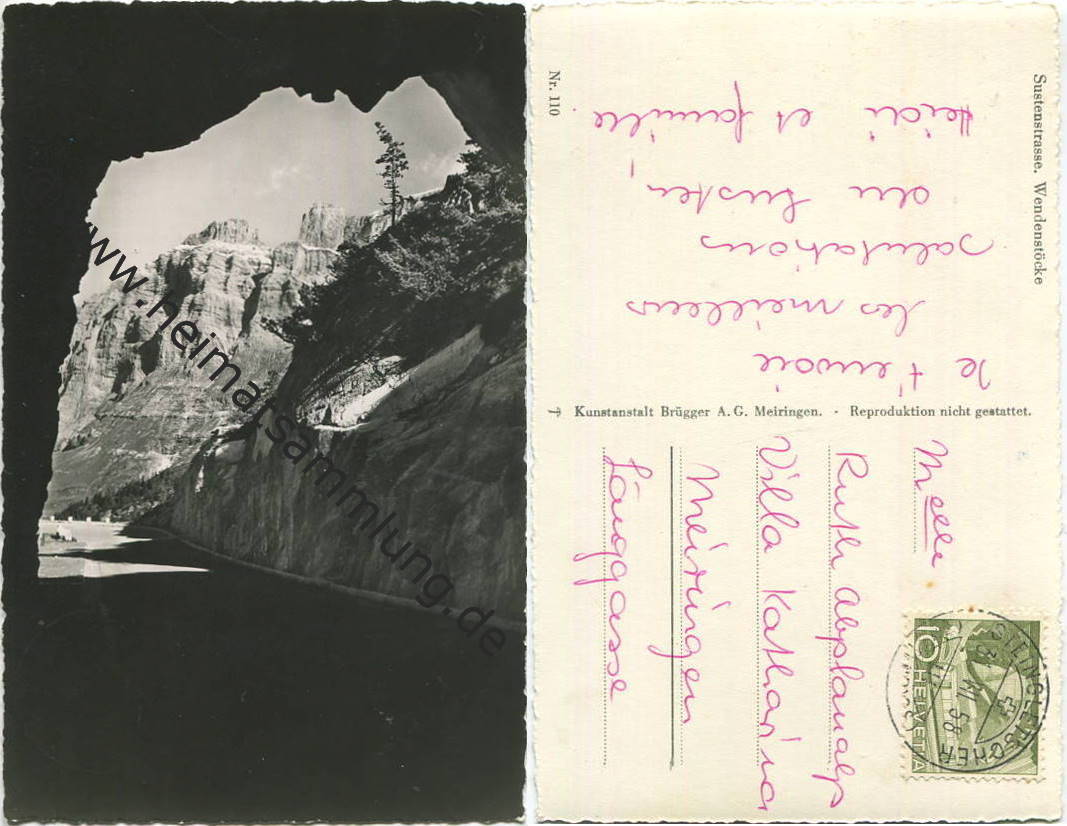 www.heimatsammlung.de
Nr. 110
Sustenstrasse. Wendenstöcke
Je t'envoie
les meilleurs
salutations
du Susten,
Heidi et famille
Kunstanstalt Brügger A. G. Meiringen. - Reproduktion nicht gestattet.
Melle
Ruth Abplanalp
Villa Katharina
Meiringen
Länggasse
10
HELVETIA
STEINGLETSCHER